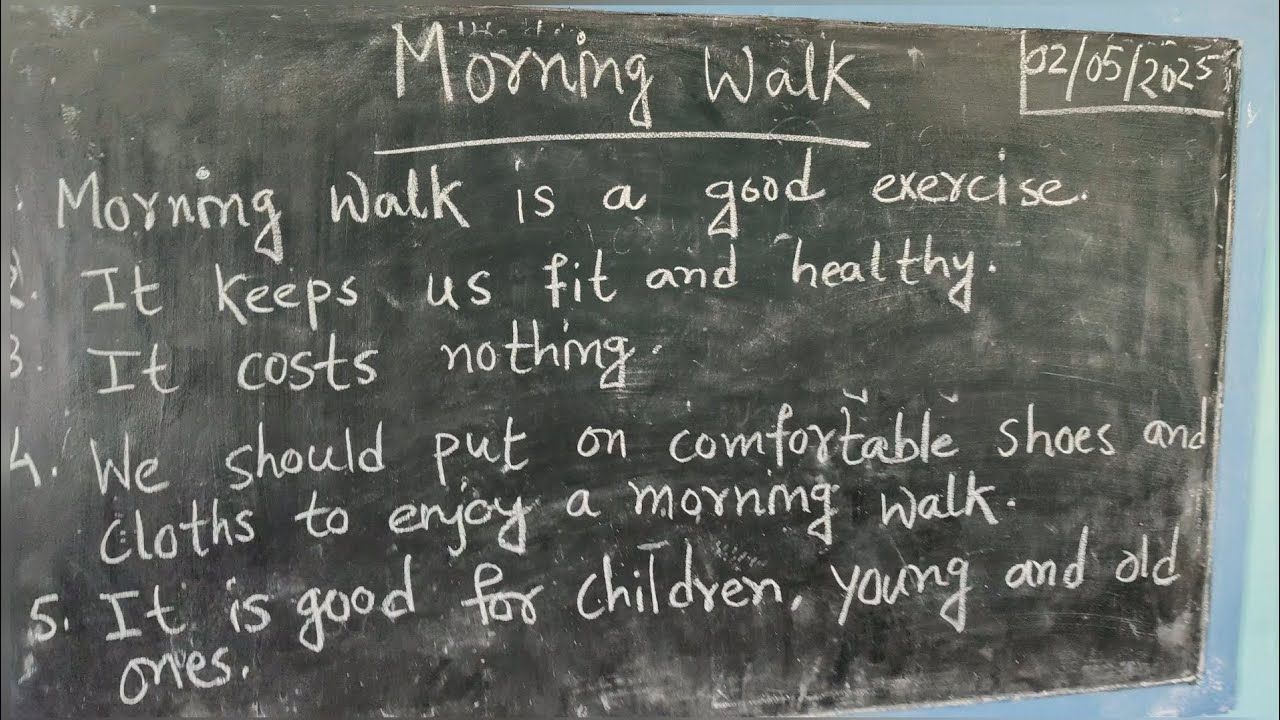 Morning Walk
02/05/2025
Morning Walk is a good exercise.
2. It keeps us fit and healthy.
3. It costs nothing.
4. We should put on comfortable shoes and
cloths to enjoy a morning walk.
5. It is good for children, young and old
ones.